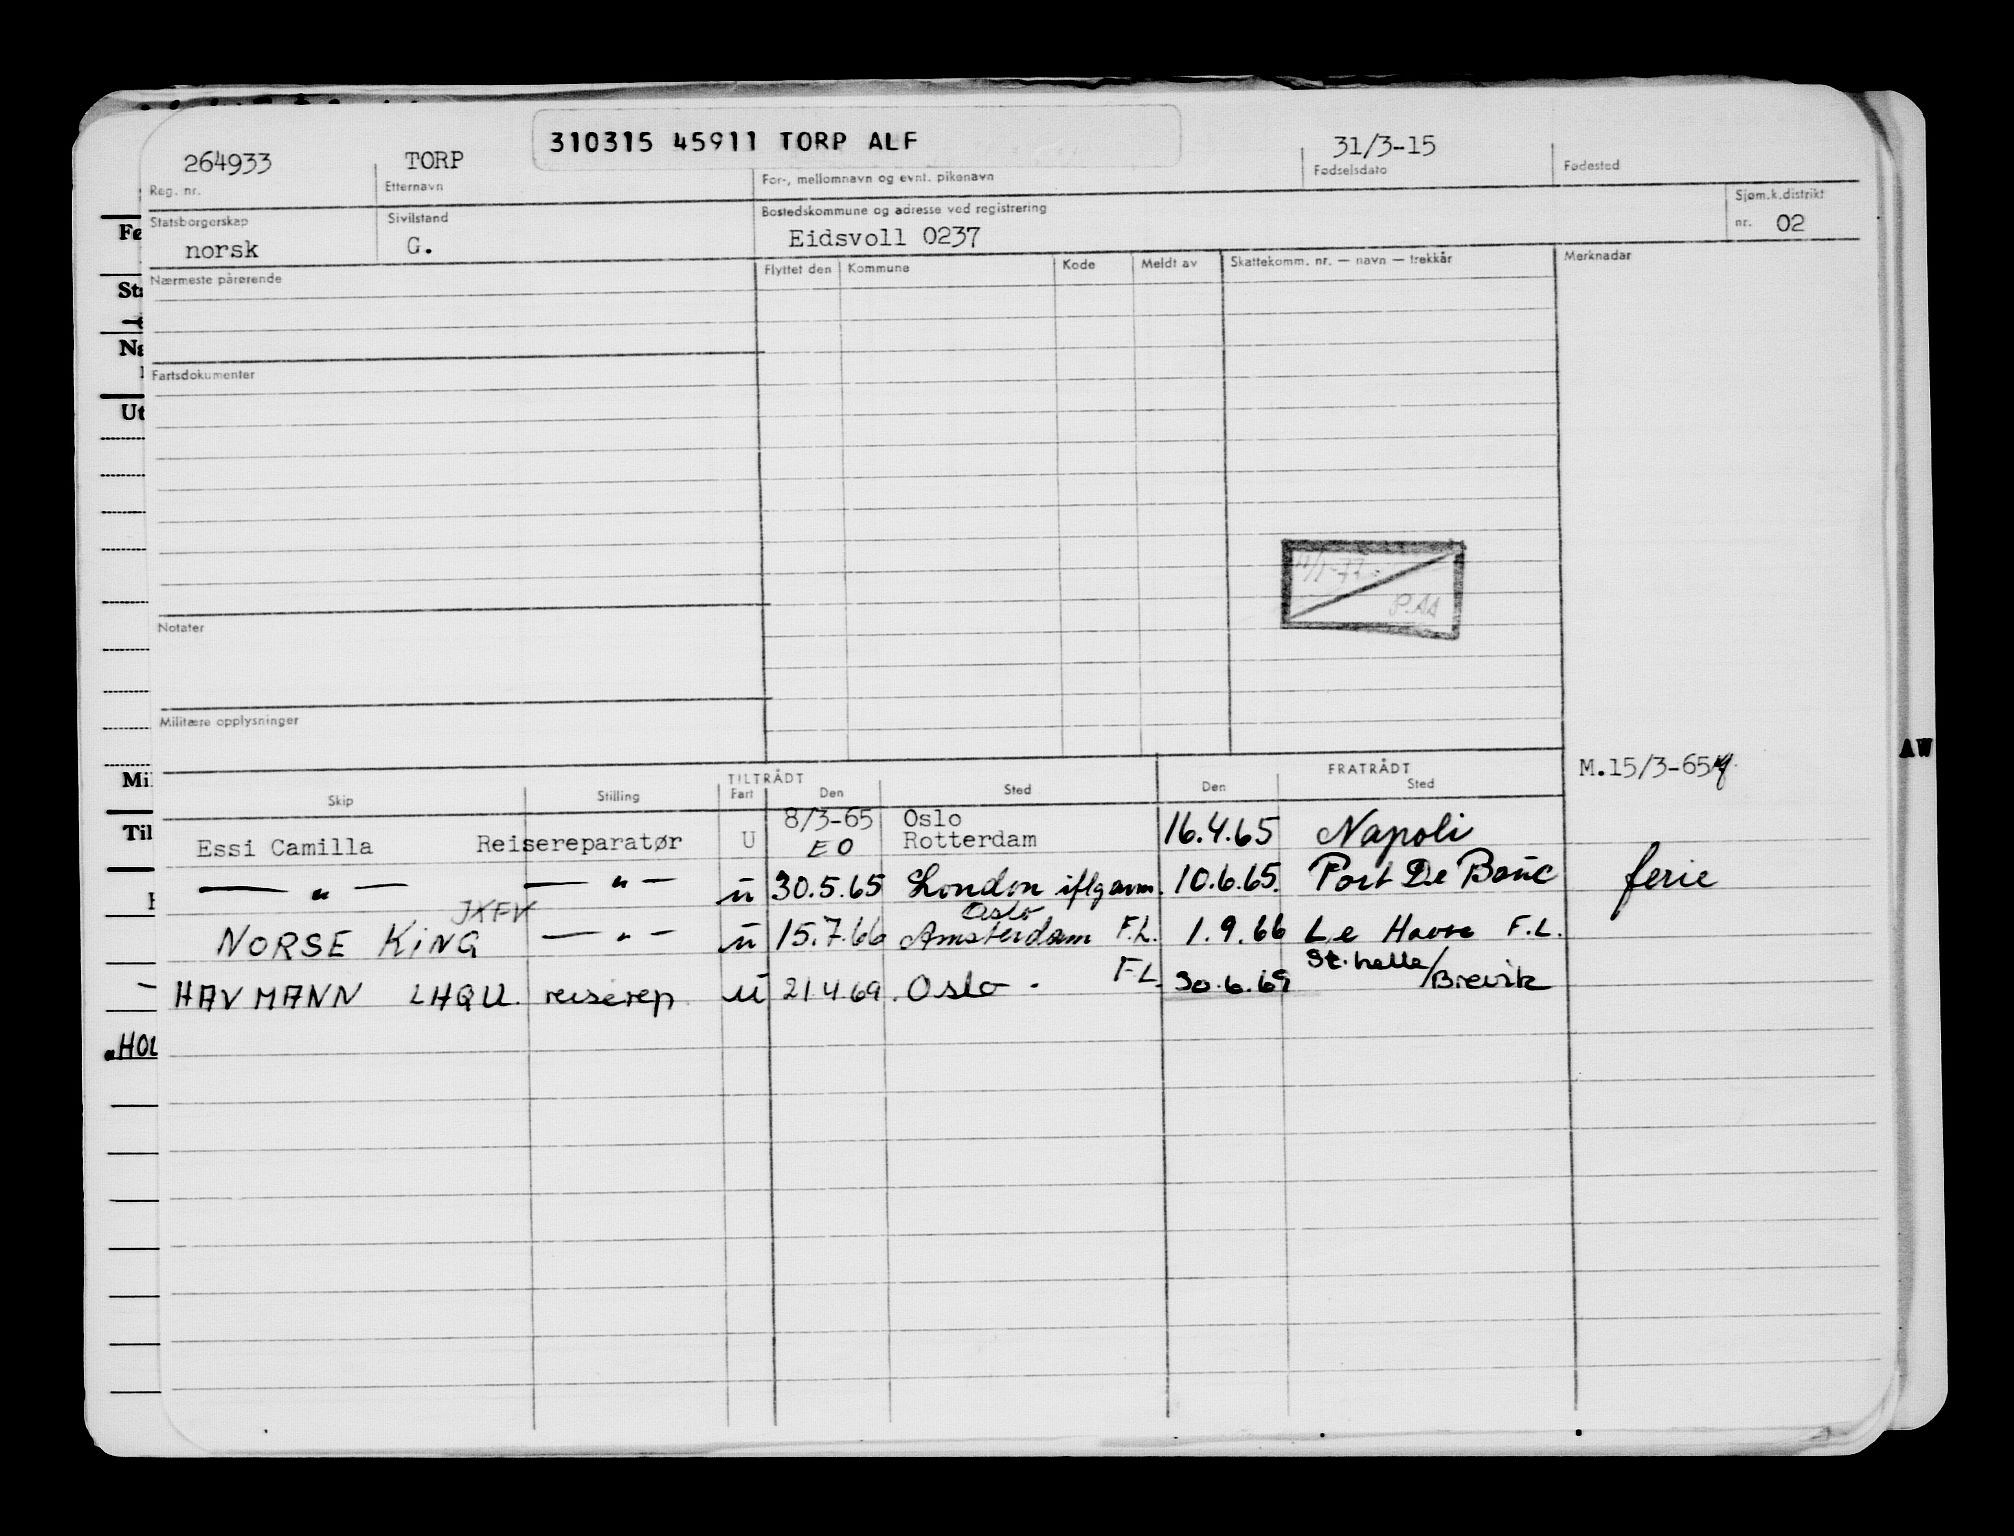 310315 45911 TORP ALF
264933 TORP 31/3-15
Reg. nr. Etternavn For-, mellomnavn og evnt. pikenavn Fødselsdato Fødested
Statsborgerskap Sivilstand Bostedskommune og adresse ved registrering Sjøm.k.distrikt
norsk G. Eidsvoll 0237 nr. 02
Nærmeste pårørende Flyttet den Kommune Kode Meldt av Skattekomm. nr. — navn — trekkår Merknader
Fartsdokumenter
P.AA
Notater
Militære opplysninger
TILTRÅDT FRATRÅDT M.15/3-65
Skip Stilling Fart Den Sted Den Sted
8/3-65 Oslo
Essi Camilla Reisereparatør U EO Rotterdam 16.4.65 Napoli
— " — — " — u 30.5.65 London iflg avm. 10.6.65. Port De Bouc ferie
JXFV Oslo
NORSE KING — " — u 15.7.66 Amsterdam F.L. 1.9.66 Le Havre F.L.
St. helle/
HAVMANN LHQU. reiserep u 21.4.69. Oslo. F.L. 30.6.69 Brevik
Fø
Sta
Na
Ut
Mil
Til
HOL
AW